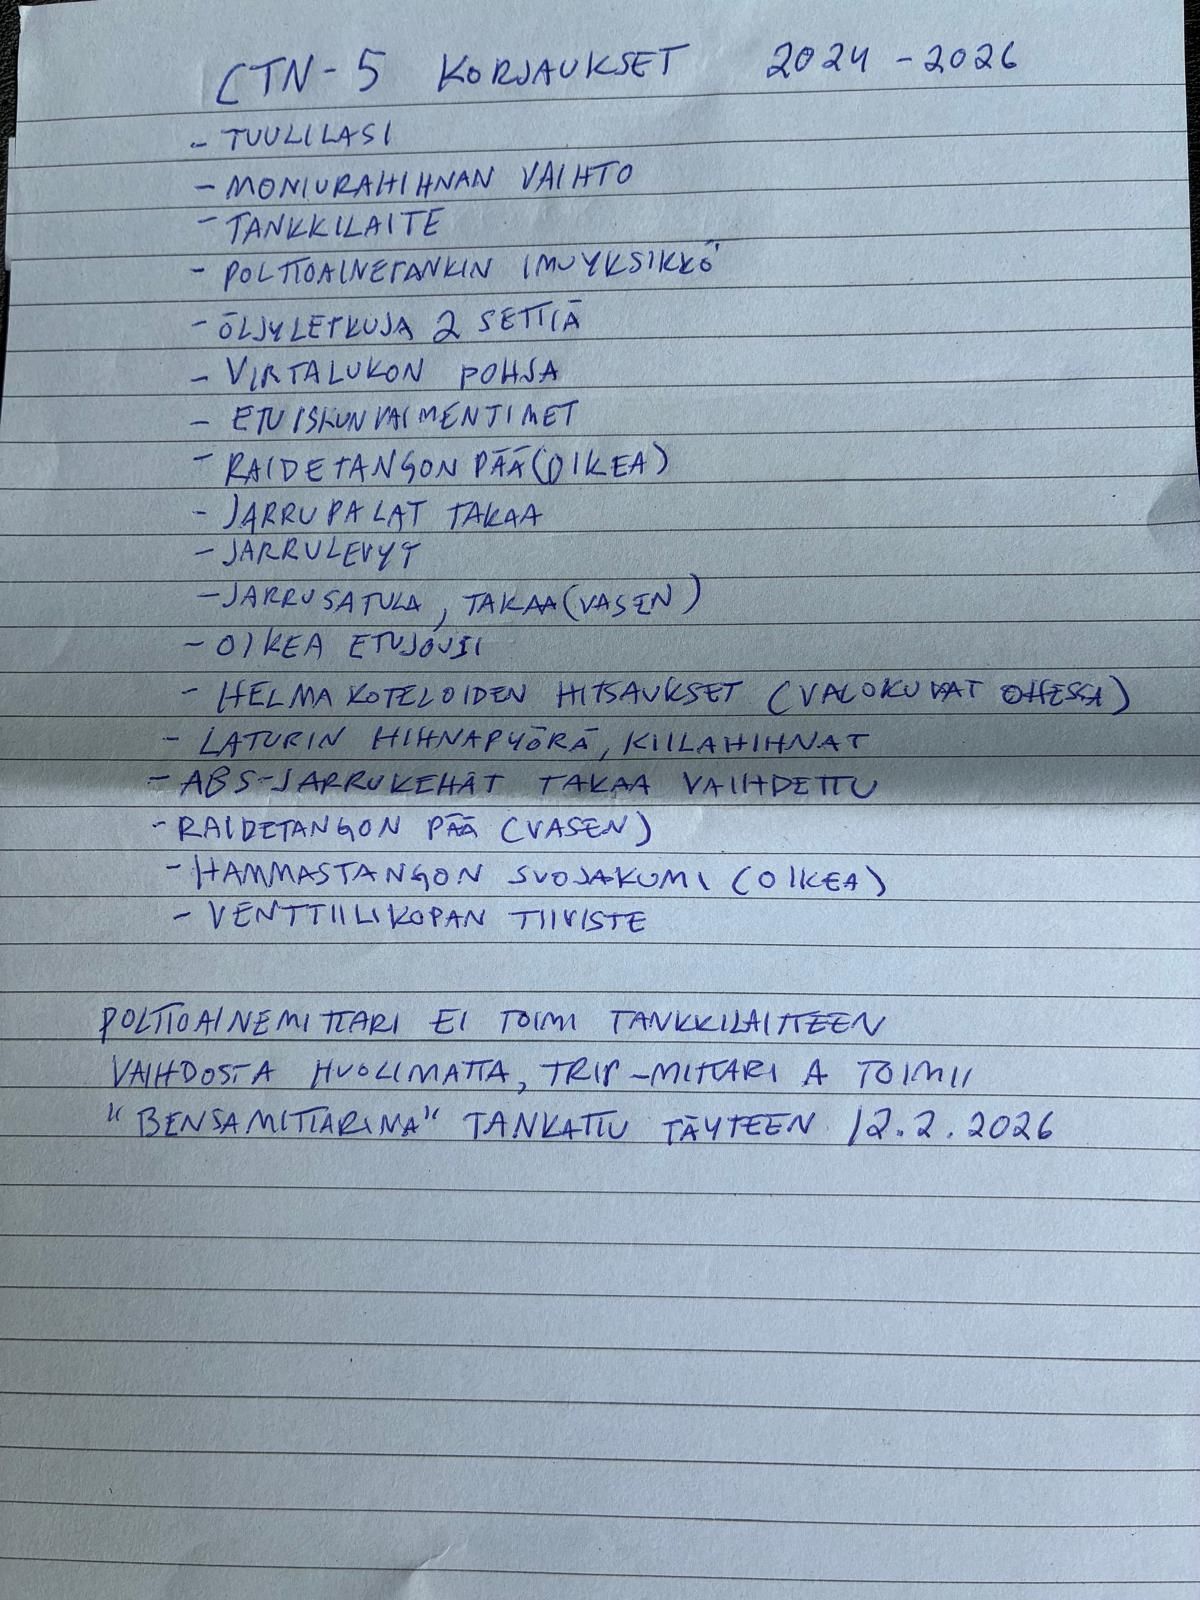 CTN-5 KORJAUKSET 2024-2026
- TUULILASI
- MONIURAHIHNAN VAIHTO
- TANKKILAITE
- POLTTOAINETANKIN IMUYKSIKKÖ
- ÖLJYLETKUJA 2 SETTIÄ
- VIRTALUKON POHJA
- ETUISKUNVAIMENTIMET
- RAIDETANGON PÄÄ (OIKEA)
- JARRUPALAT TAKAA
- JARRULEVYT
- JARRUSATULA, TAKAA (VASEN)
- OIKEA ETUJOUSI
- HELMAKOTELOIDEN HITSAUKSET (VALOKUVAT OHESSA)
- LATURIN HIHNAPYÖRÄ, KIILAHIHNAT
- ABS-JARRUKEHÄT TAKAA VAIHDETTU
- RAIDETANGON PÄÄ (VASEN)
- HAMMASTANGON SUOJAKUMI (OIKEA)
- VENTTIILIKOPAN TIIVISTE
POLTTOAINEMITTARI EI TOIMI TANKKILAITTEEN
VAIHDOSTA HUOLIMATTA, TRIP-MITTARI A TOIMII
"BENSAMITTARINA" TANKATTU TÄYTEEN 12.2.2026